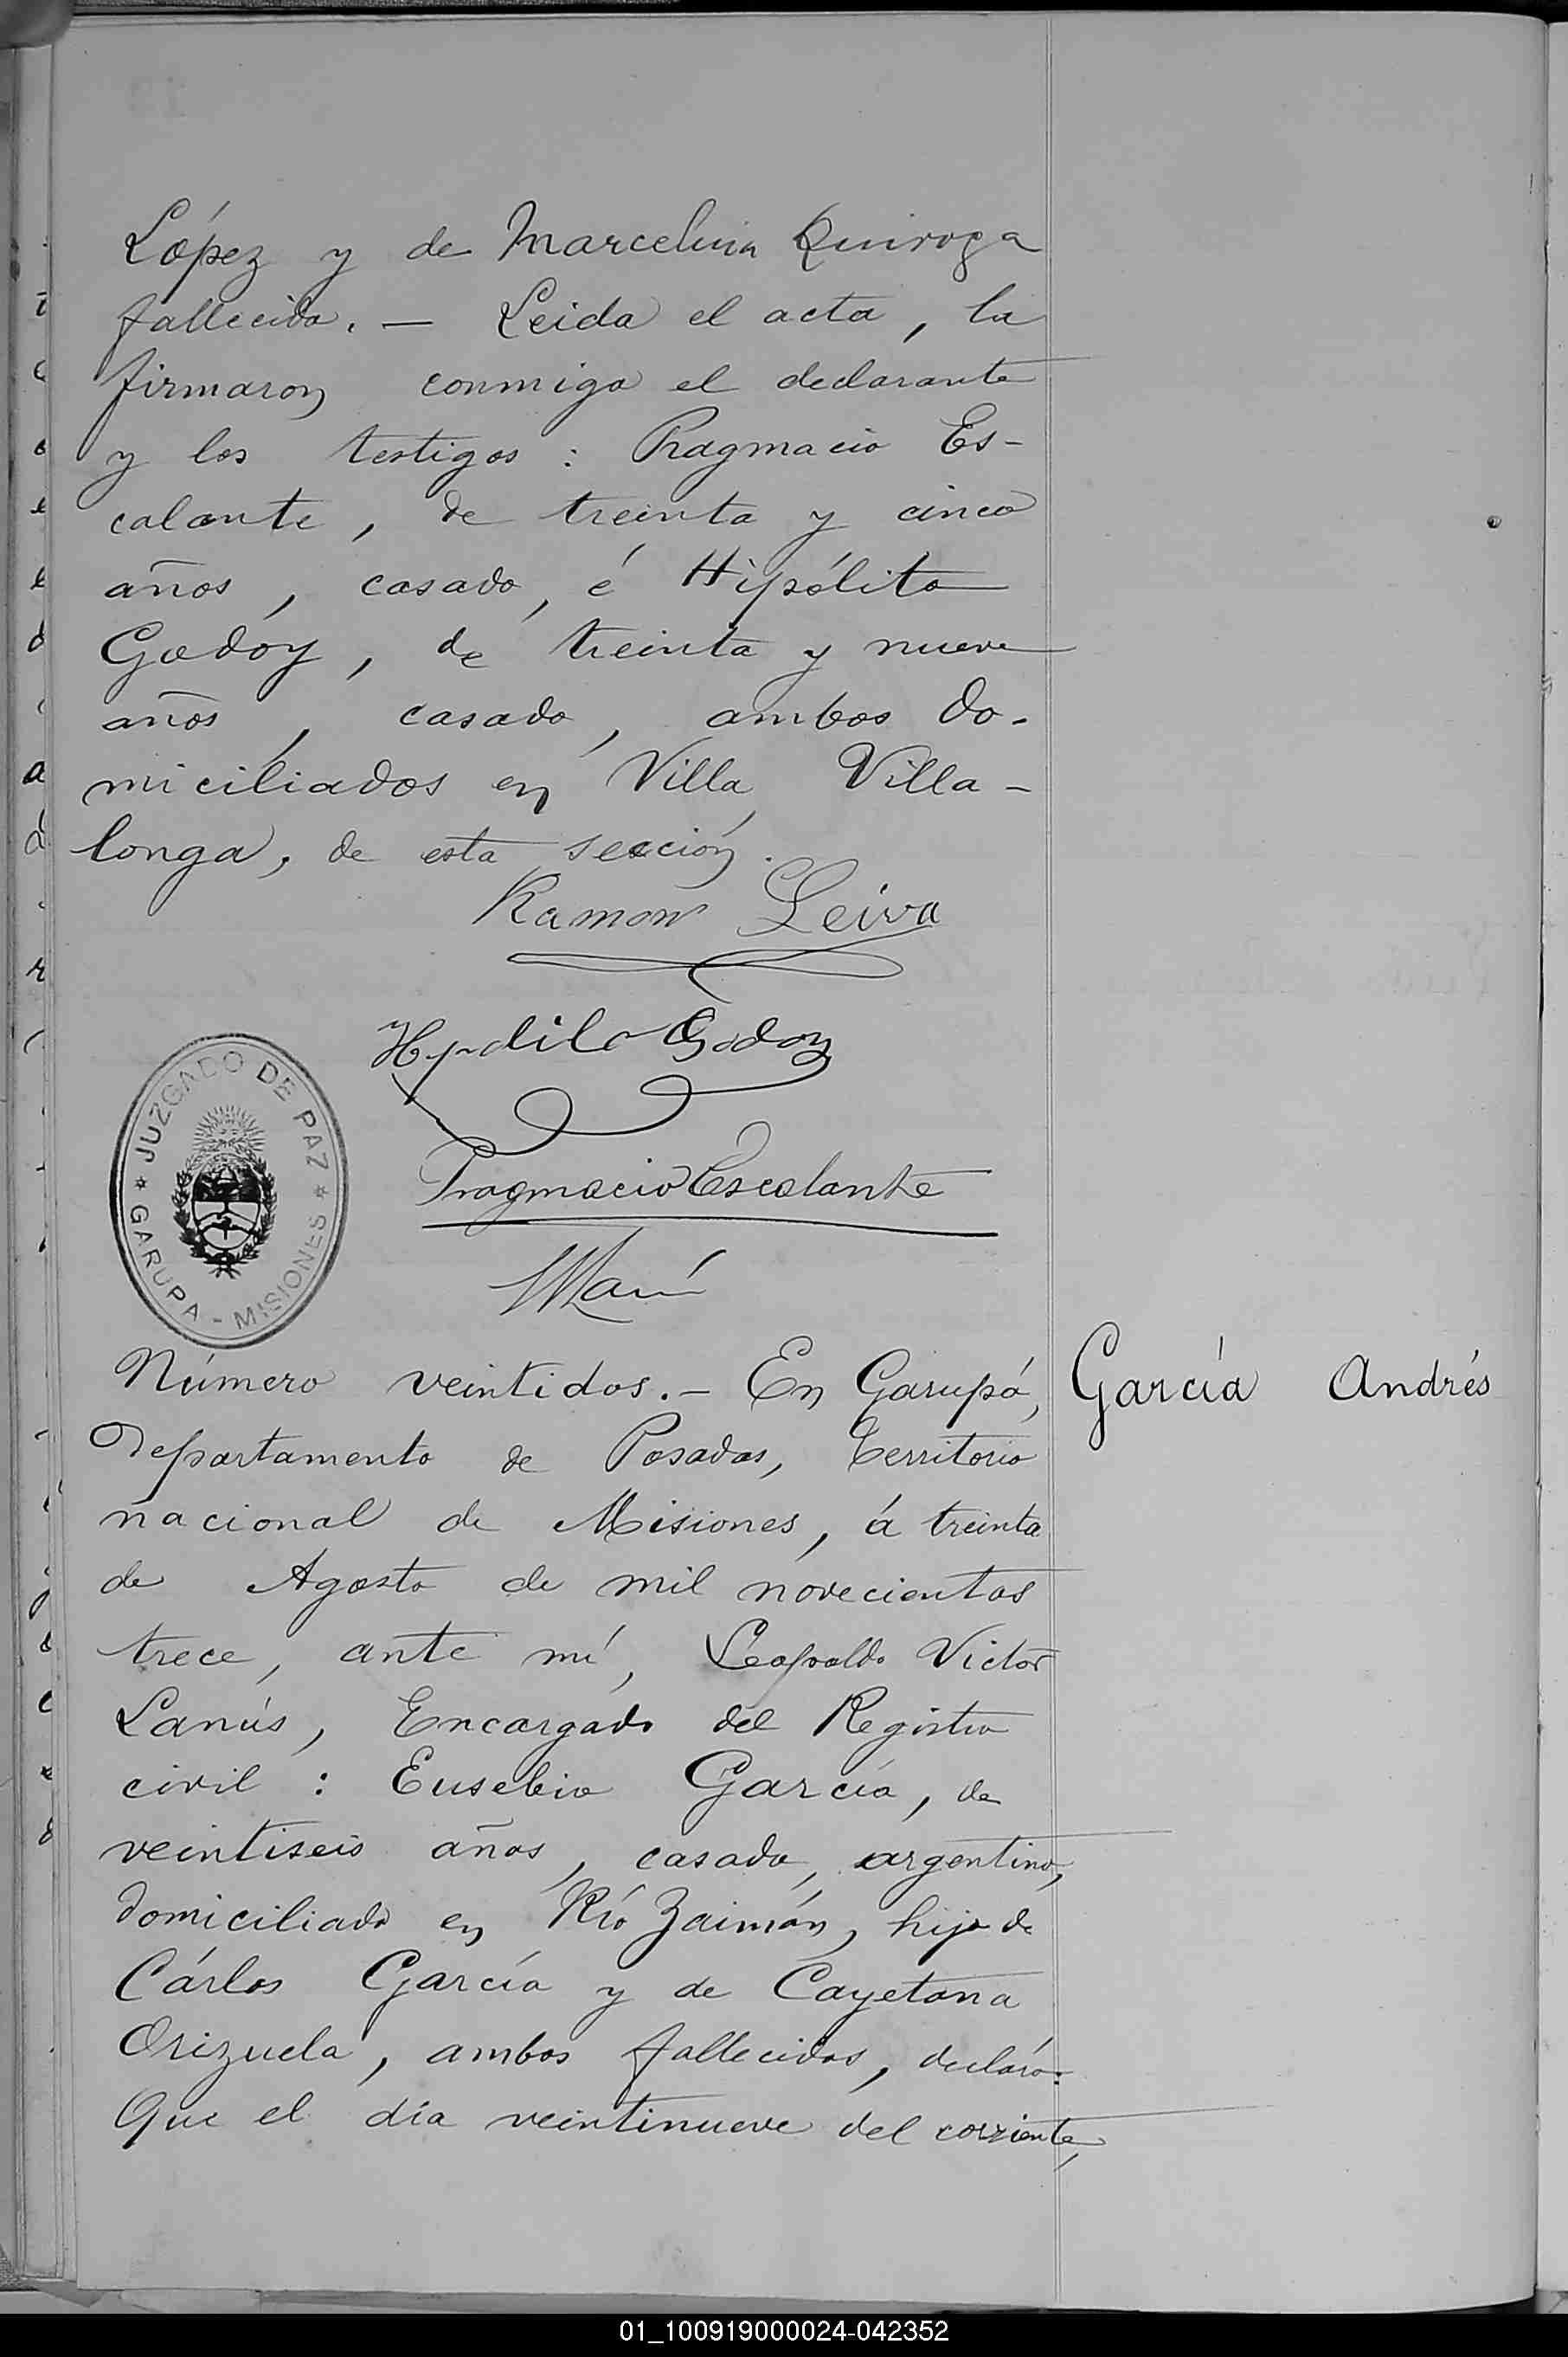 López y de Marcelina Quiroga
fallecida. — Leida el acta, la
firmaron conmigo el declarante
y los testigos: Pragmacio Es-
calante, de treinta y cinco
años, casado, é Hipólito
Godoy, de treinta y nueve
años, casado, ambos do-
miciliados en Villa Villa-
longa, de esta sección.
Ramon Leiva
Hypolito Godoy
Pragmacio Escalante
JUZGADO DE PAZ
GARUPA - MISIONES
Número veintidos. — En Garupá,
García Andrés
Departamento de Posadas, Territorio
nacional de Misiones, á treinta
de Agosto de mil novecientos
trece, ante mí, Leopoldo Victor
Lanús, Encargado del Registro
civil: Eusebio García, de
veintiseis años, casado, argentino,
domiciliado en Río Zaimán, hijo de
Cárlos García y de Cayetana
Orizuela, ambos fallecidos, declaró:
Que el día veintinueve del corriente,
01_100919000024-042352